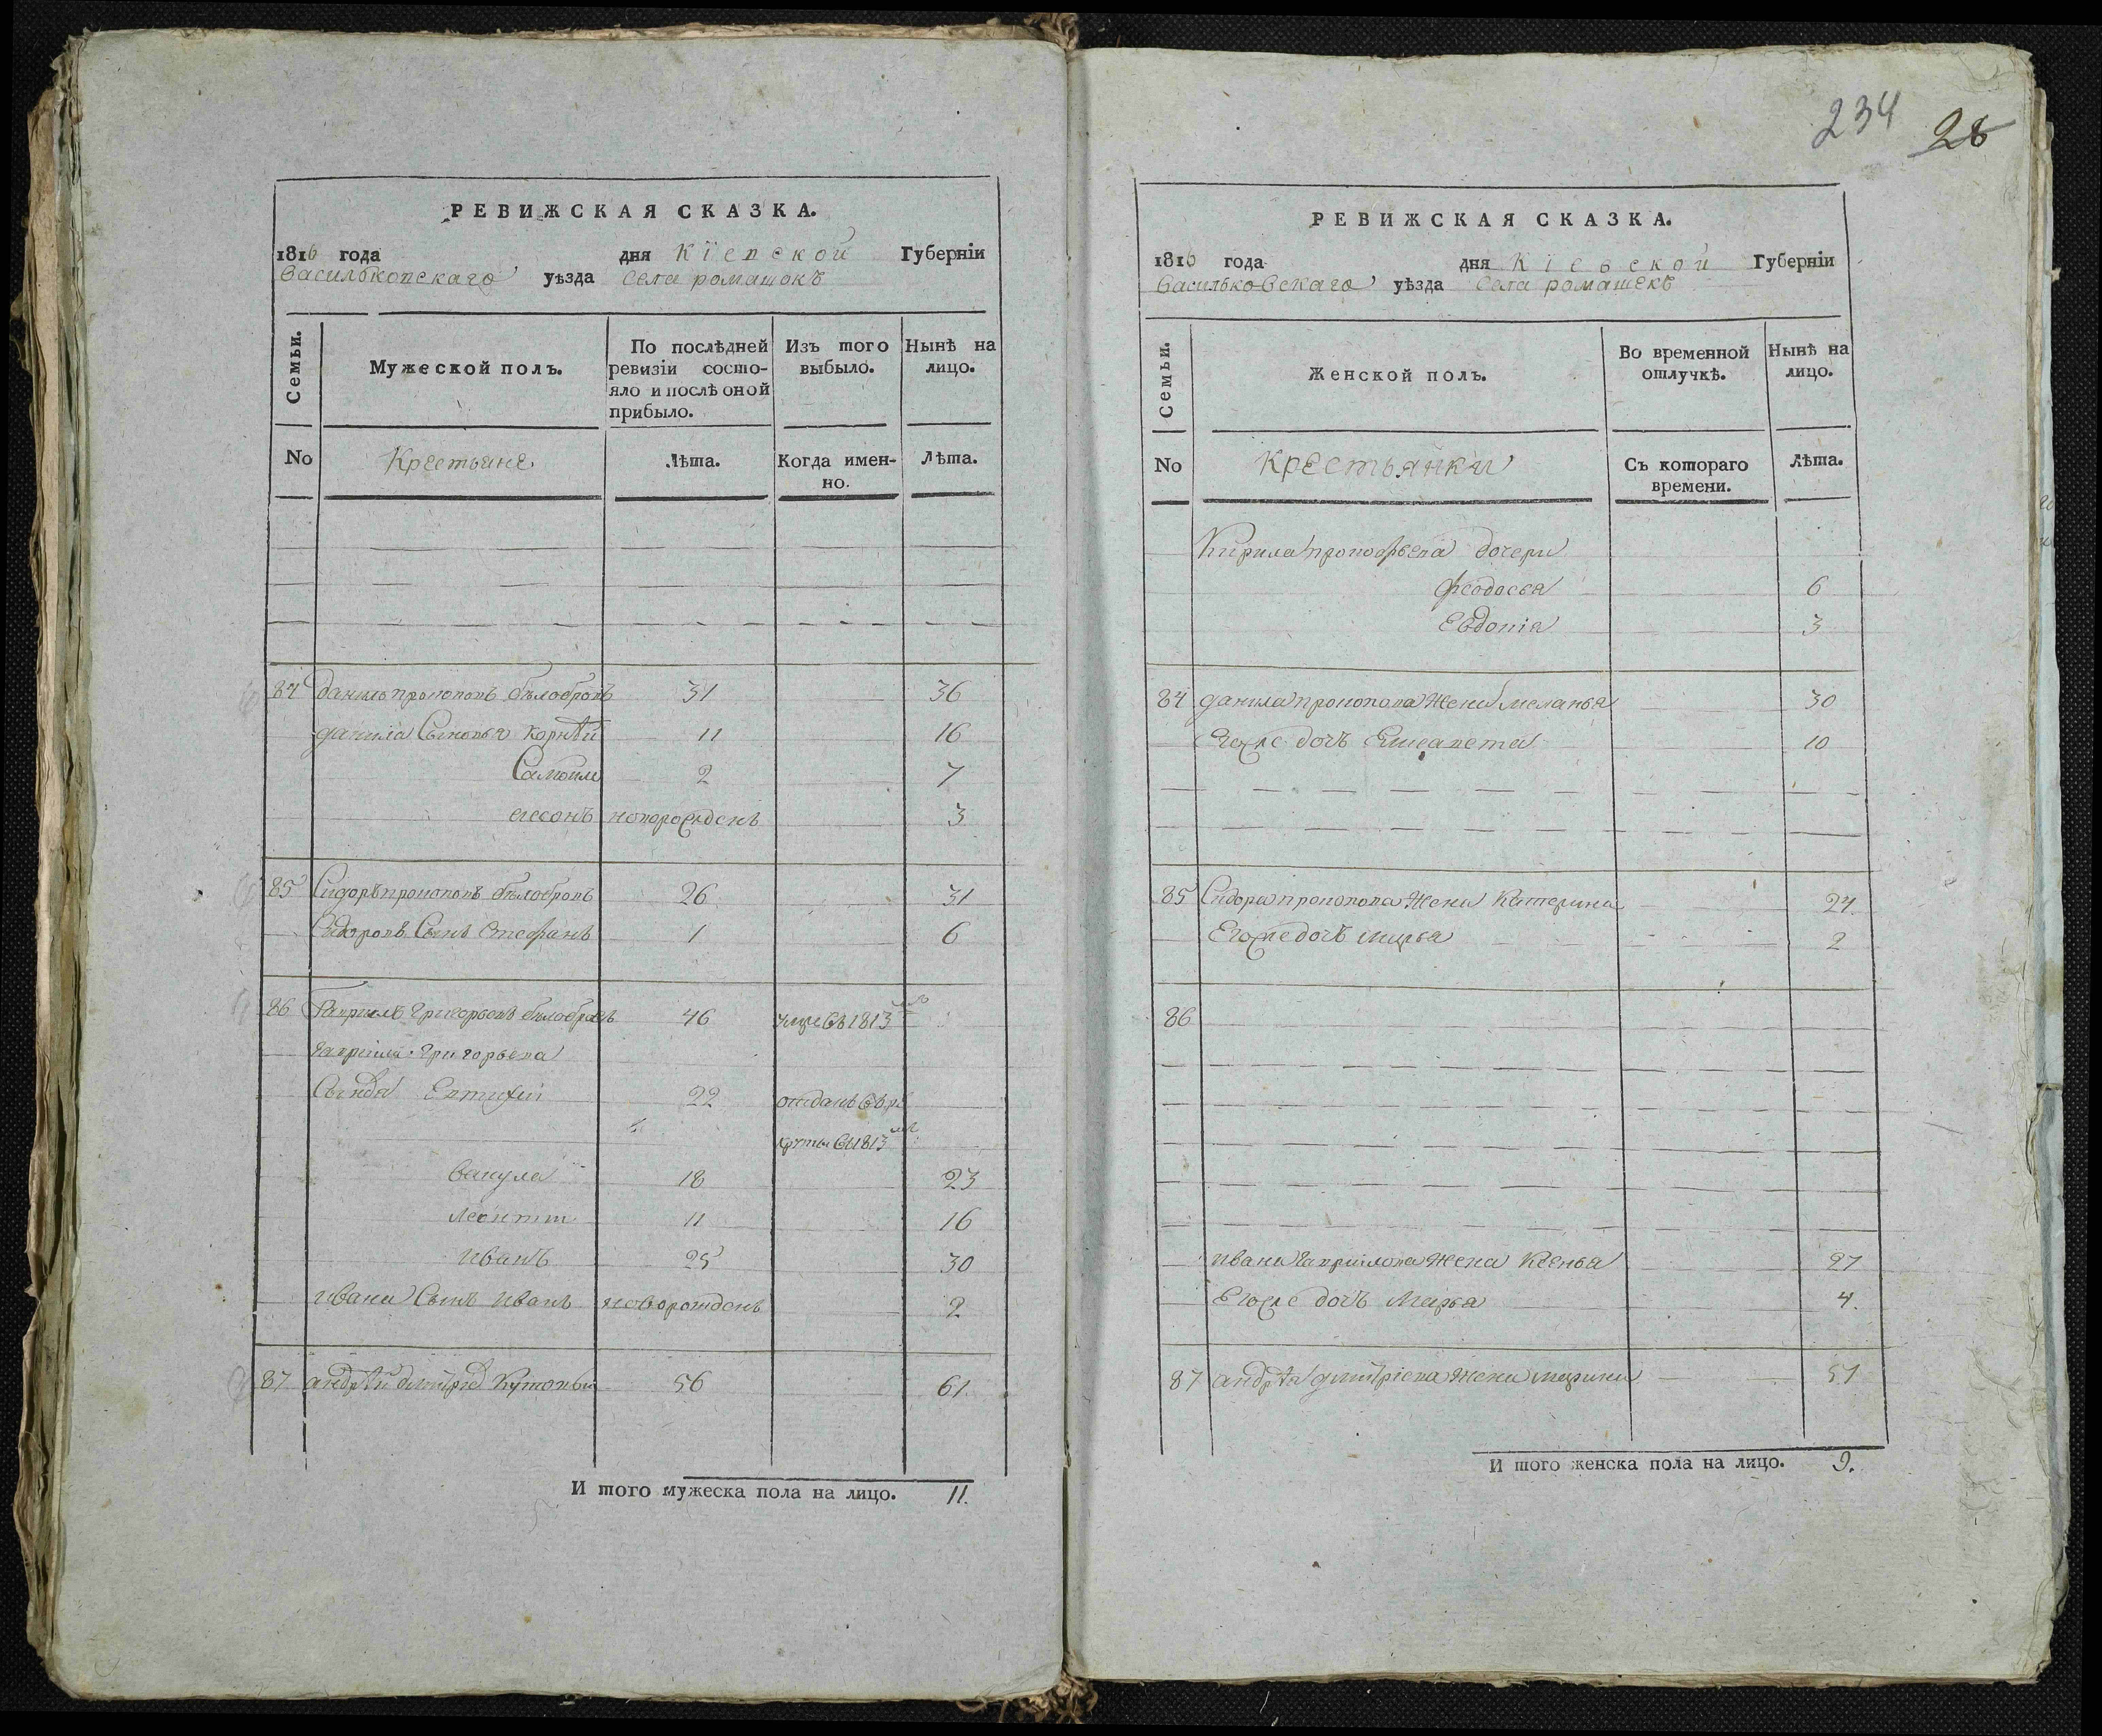 РЕВИЖСКАЯ СКАЗКА.
1816 года дня Кіевской Губерніи
Васильковскаго уѣзда Села ромашокъ
Семьи.
Мужеской полъ.
По послѣдней ревизіи состо-
яло и послѣ оной
прибыло.
Изъ того
выбыло.
Нынѣ на
лицо.
No
Крестьяне
Лѣта.
Когда имен-
но.
Лѣта.
84 данило прокоповъ бѣлобровъ 31 36
данила Сыновья корнѣй 11 16
Самойло 2 7
новорожденъ 3
85 Сидоръ прокоповъ бѣлобровъ 26 31
Сидоровъ Сынъ Стефанъ 1 6
86 Гаврилъ Григорьевъ бѣлобровъ 46 умре въ 1813мъ
гаврила Григорьева
Сыновья Евтихій 22 отданъ въ ре
круты въ 1813мъ
вакула 18 23
леонтій 11 16
иванъ 25 30
ивана Сынъ иванъ новорожденъ 2
87 андрѣй дмитріев 56 61.
И того мужеска пола на лицо. 11.
234
28
РЕВИЖСКАЯ СКАЗКА.
1816 года дня Кіевской Губерніи
Васильковскаго уѣзда Села ромашекъ
Семьи.
Женской полъ.
Во временной
отлучкѣ.
Нынѣ на
лицо.
No
Крестьянки
Съ котораго
времени.
Лѣта.
Кирила прокофьева дочери
феодосья 6
Евдокія 3
84 данила прокопова Жена меланья 30
Егоже дочь Елисавета 10
85 Сидора прокопова Жена Катерина 24.
Егоже дочь марья 2
86
ивана гаврилова жена Ксенья 27
Егоже дочь Марья 4.
87 андрѣя дмитріева Жена марина 51
И того женска пола на лицо. 9.